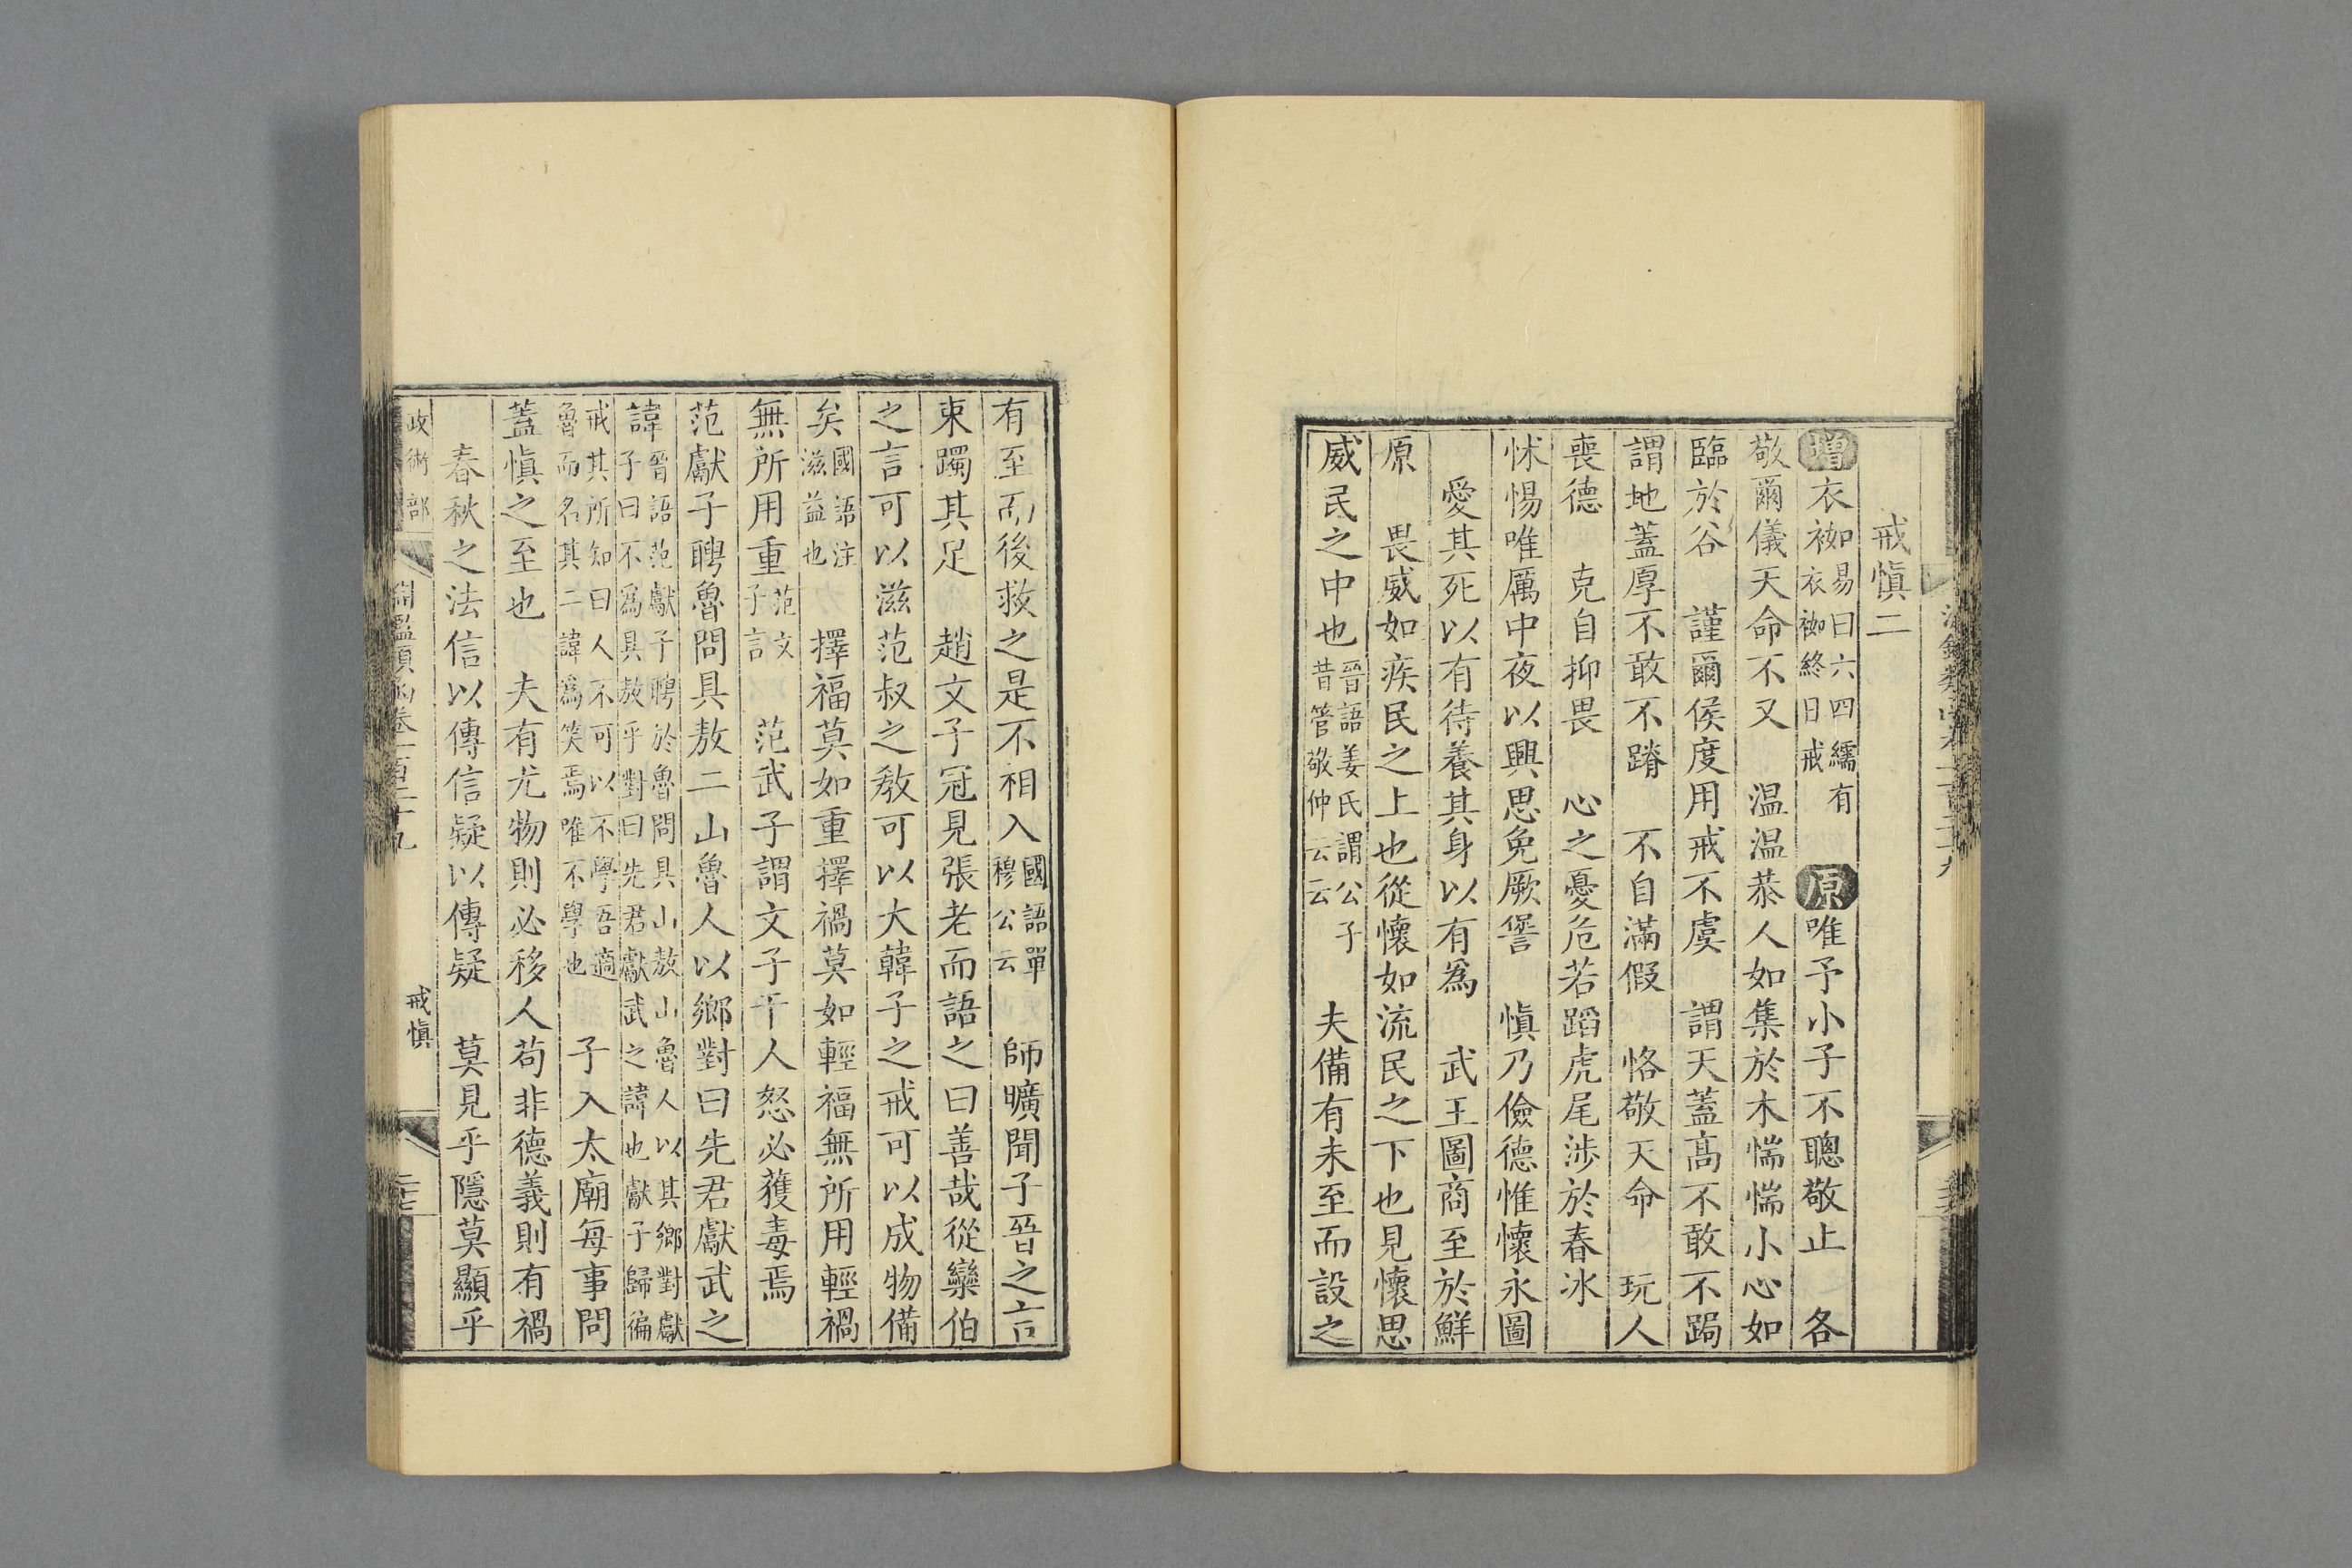 戒慎二
增衣袽易曰六四繻有衣袽終日戒 原唯予小子不聰敬止 各
敬爾儀天命不又 温温恭人如集於木惴惴小心如
臨於谷 謹爾侯度用戒不虞 謂天蓋高不敢不跼
謂地蓋厚不敢不蹐 不自滿假 恪敬天命 玩人
喪德 克自抑畏 心之憂危若蹈虎尾涉於春冰
怵惕唯厲中夜以興思免厥諐 慎乃儉德惟懷永圖
愛其死以有待養其身以有爲 武王圖商至於鮮
原 畏威如疾民之上也從懷如流民之下也見懷思
威民之中也晉語姜氏謂公子昔管敬仲云云 夫備有未至而設之
有至而後救之是不相入國語單穆公云 師曠聞子晉之言
東躅其足 趙文子冠見張老而語之曰善哉從欒伯
之言可以滋范叔之教可以大韓子之戒可以成物備
矣國語注滋益也 擇福莫如重擇禍莫如輕福無所用輕禍
無所用重范文子言 范武子謂文子干人怒必獲毒焉
范獻子聘魯問具敖二山魯人以鄉對曰先君獻武之
諱晉語范獻子聘於魯問具山敖山魯人以其鄉對獻子曰不爲具敖乎對曰先君獻武之諱也獻子歸徧
戒其所知曰人不可以不學吾適魯而名其二諱爲笑焉唯不學也 子入太廟每事問
蓋慎之至也 夫有尤物則必移人苟非德義則有禍
春秋之法信以傳信疑以傳疑 莫見乎隱莫顯乎
政術部 淵鑑類函卷一百二十九 戒慎